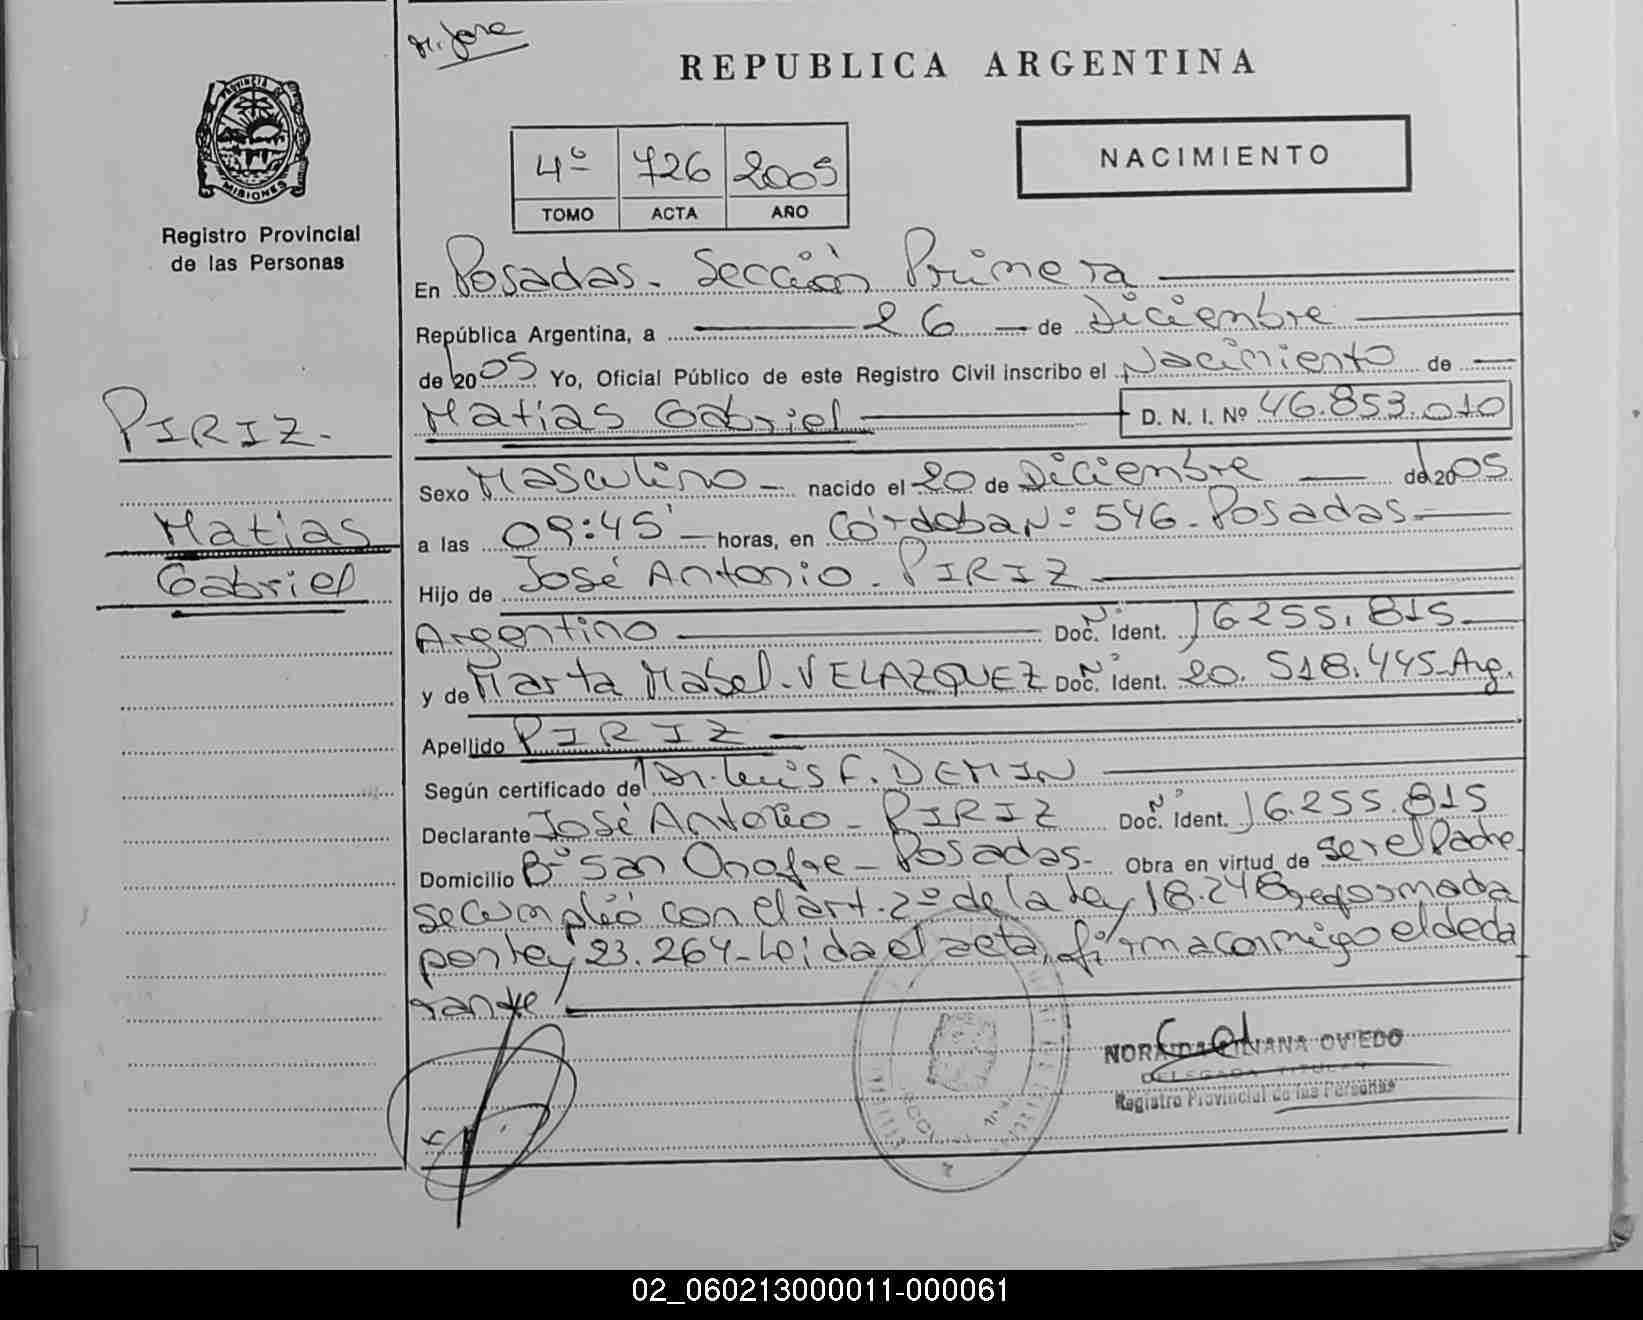 M. José
REPUBLICA ARGENTINA
PROVINCIA DE
MISIONES
Registro Provincial
de las Personas
4º 726 2005
TOMO ACTA AÑO
NACIMIENTO
En Posadas. Sección Primera
República Argentina, a 26 de Diciembre
de 2005 Yo, Oficial Público de este Registro Civil inscribo el Nacimiento de
Matias Gabriel D. N. I. Nº 46.853.010
PIRIZ.
Matias
Gabriel
Sexo Masculino - nacido el 20 de Diciembre de 2005
a las 09:45' - horas, en Córdoba Nº 546. Posadas
Hijo de José Antonio. PIRIZ
Argentino Doc. Nº Ident. 16.255.815
y de Marta Mabel. VELAZQUEZ Doc. Nº Ident. 20.518.445 Arg.
Apellido PIRIZ
Según certificado de Dr. Luis F. DEMIN
Declarante José Antonio - PIRIZ Doc. Nº Ident. 16.255.815
Domicilio Bº San Onofre - Posadas. Obra en virtud de ser el Padre.
se cumplió con el art. 2º de la Ley 18.248, reformada
por Ley 23.264. Leida el acta, firma conmigo el decla
rante
LILIANA OVIEDO
DELEGADA TITULAR
Registro Provincial de las Personas
02_060213000011-000061